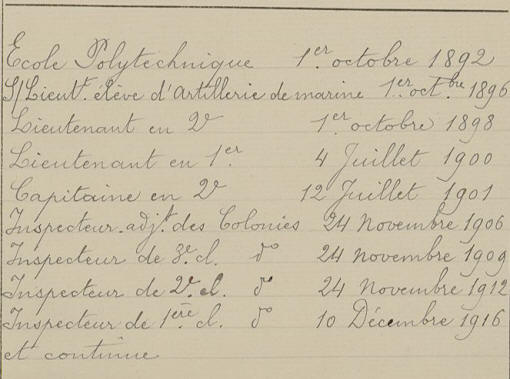 Ecole Polytechnique 1er octobre 1892
S/Lieutt élève d'Artillerie de marine 1er octbre 1896
Lieutenant en 2d 1er octobre 1898
Lieutenant en 1er 4 Juillet 1900
Capitaine en 2d 12 Juillet 1901
Inspecteur-adjt des Colonies 24 Novembre 1906
Inspecteur de 3e cl. do 24 Novembre 1909
Inspecteur de 2e cl. do 24 Novembre 1912
Inspecteur de 1ère cl. do 10 Décembre 1916
et continue